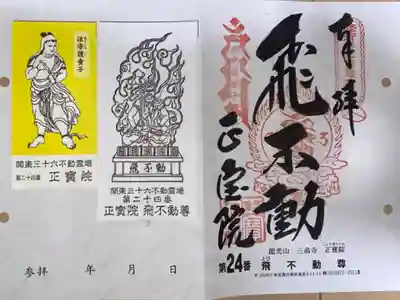 法守護童子
関東三十六不動霊場
第二十四番 正寶院
飛不動
関東三十六不動霊場
第二十四番
正寶院 飛不動尊
参拝 年 月 日
奉拝
飛不動
正宝院
龍光山 三高寺 正寶院
第24番 飛不動尊